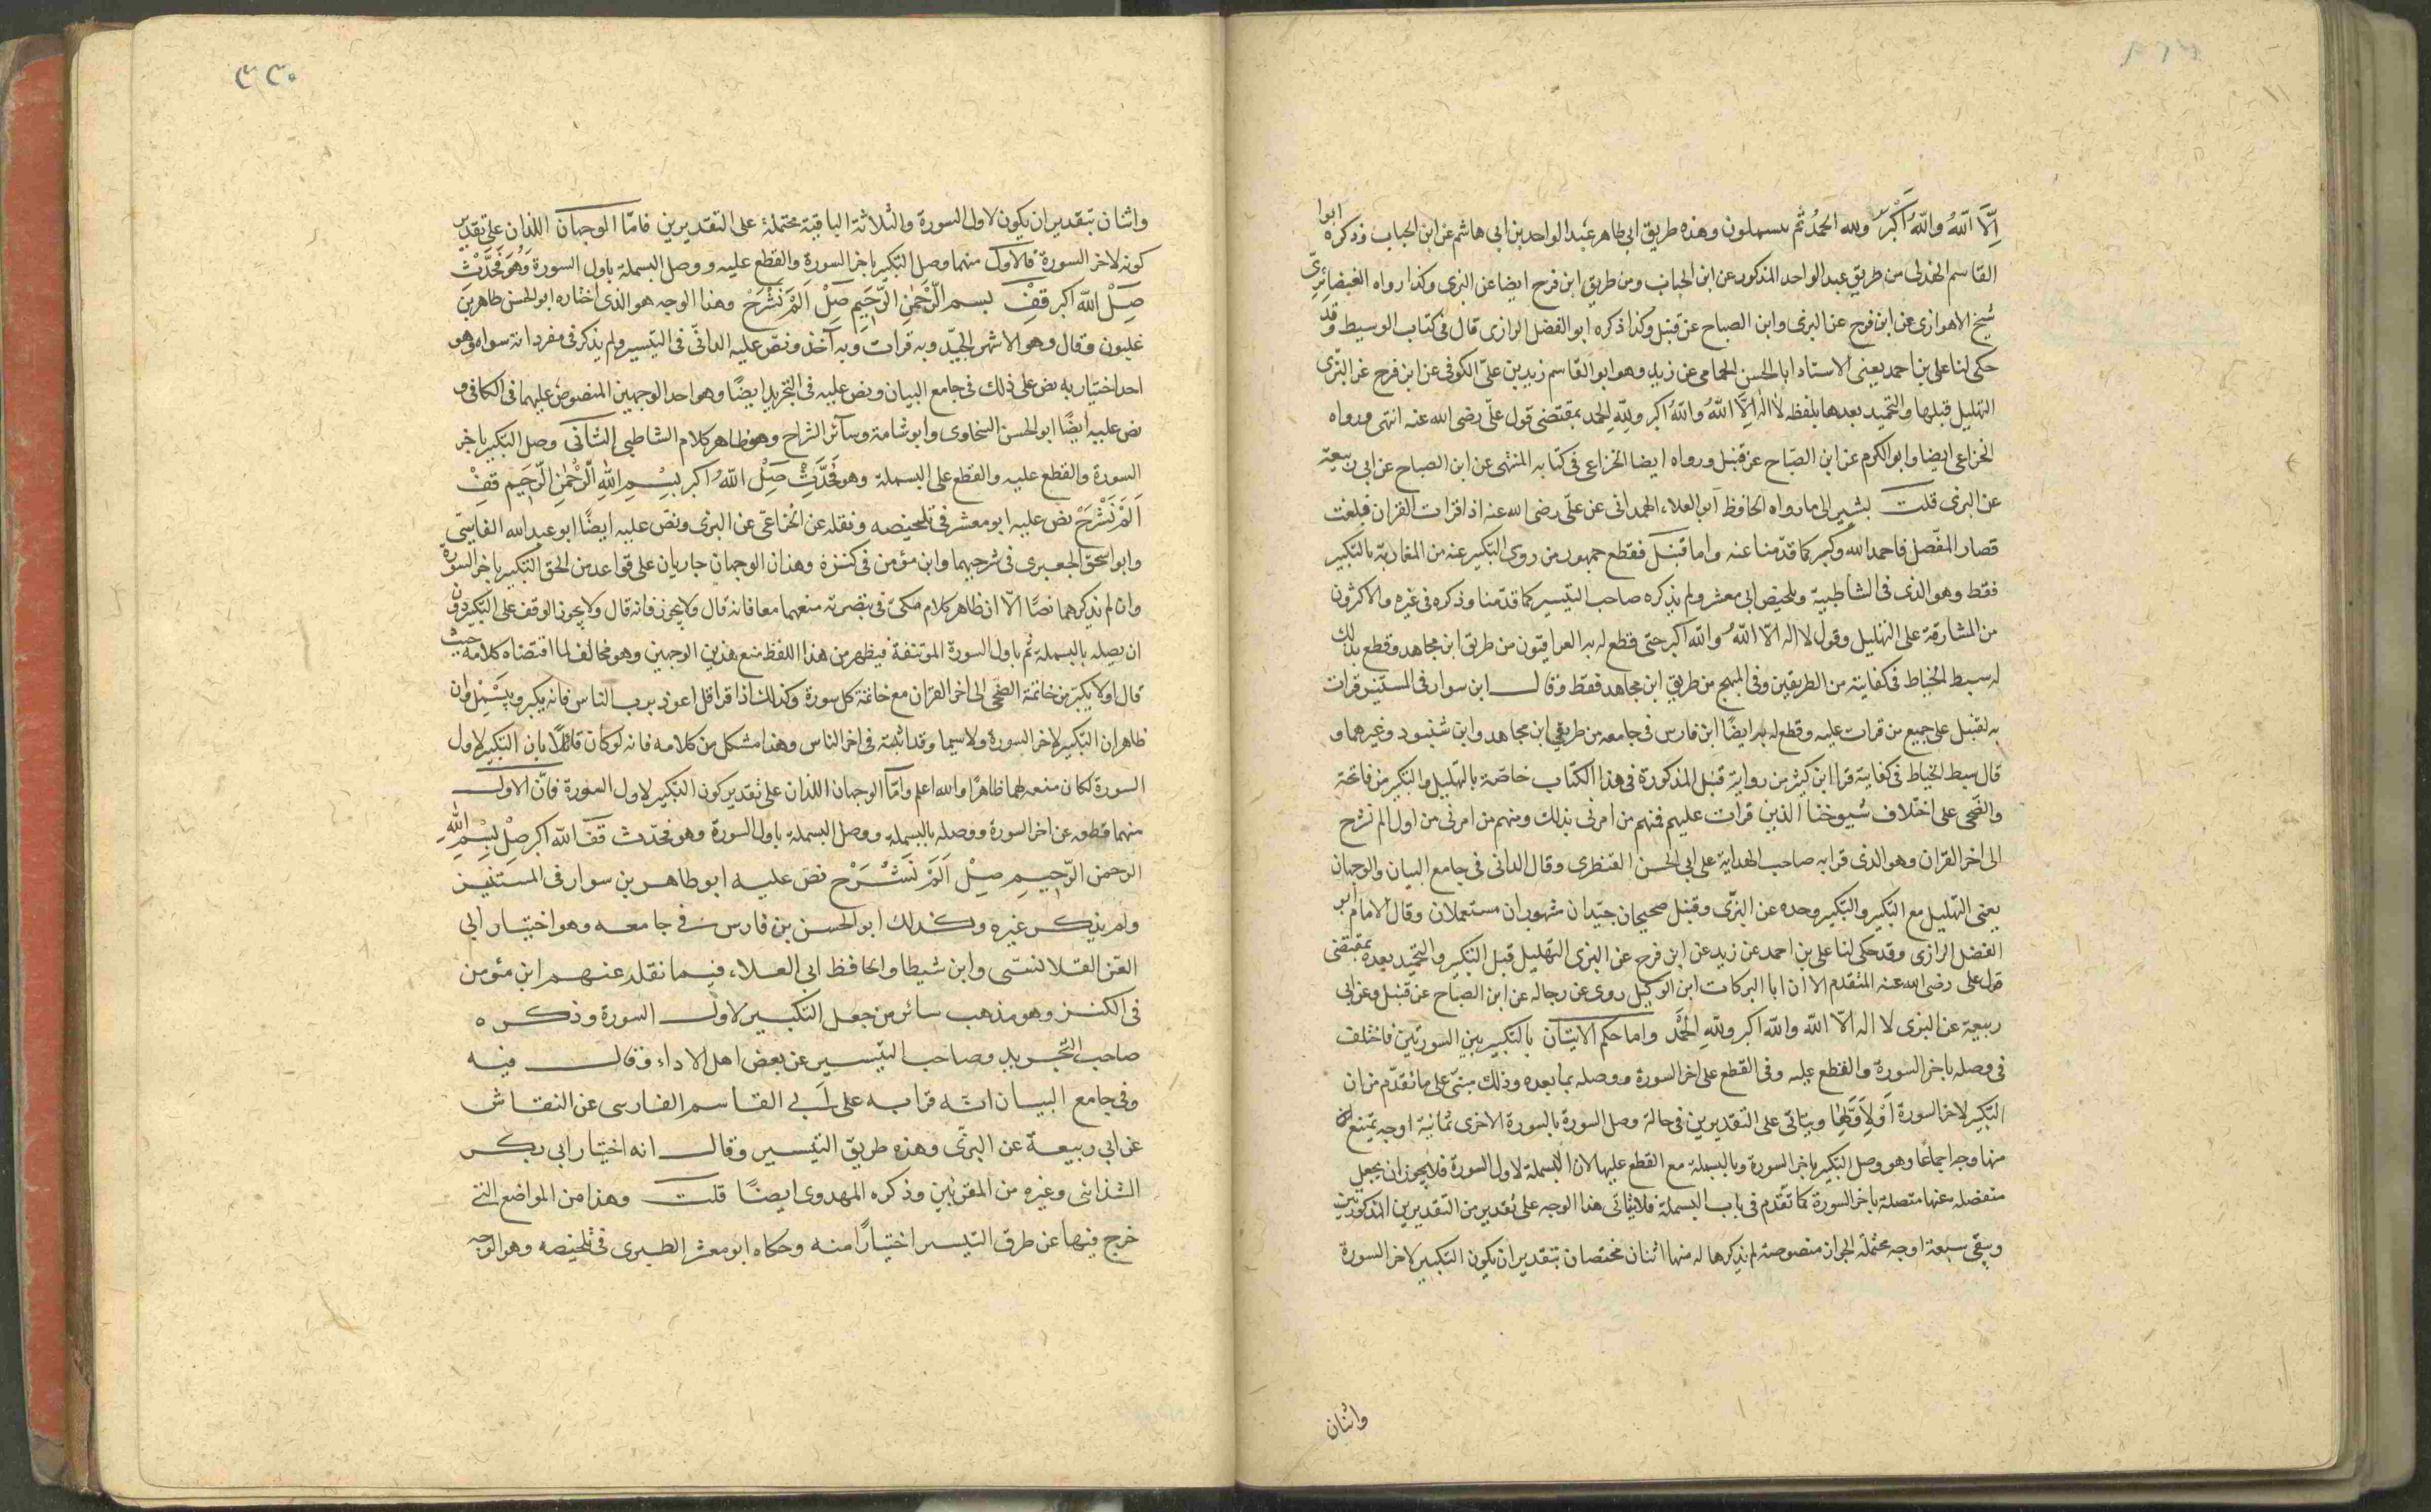 اِلَّا اللّٰهُ واللّٰهُ اَكْبَرُ ولله الحَمْدُ ثم يبسملون وهذه طريق ابى طاهر عبد الواحد بن ابى هاشم عن ابن الحباب وذكره ابوا
القاسم الهذلى من طريق عبد الواحد المذكور عن ابن الحباب ومن طريق ابن فرح ايضا عن البزى وكذا رواه الغضائرىّ
شيخ الاهوازى عن ابن فرح عن البزى وابن الصباح عن قنبل وكذا ذكره ابو الفضل الرازى قال فى كتاب الوسيط وقد
حكى لنا على بن احمد يعنى الاستاد ابا الحسن الحمامى عن زيد وهو ابو القاسم زيد بن علىّ الكوفى عن ابن فرح عن البزّى
التهليل قبلها والتحميد بعدها بلفظه لا اله اِلَّا اللّٰهُ واللّٰهُ اكبر وللهِ الحمد بمقتضى قول علىّ رضى الله عنه انتهى ورواه
الخزاعى ايضا وابو الكرم عن ابن الصبّاح عن قنبل ورواه ايضا الخزاعى فى كتابه المنتهى عن ابن الصباح عن ابى ربيعة
عن البزى قلت يشير الى ما رواه الحافظ ابو العلاء الهمدانى عن علّى رضى الله عنه اذا قرات القران فبلغت
قصار المفصّل فاحمد الله وكبر كما قدّمنا عنه واما قنبل فقطع جمهور من روى التكبير عنه من المغاربة بالتكبير
فقط وهو الذى فى الشاطبية وتلخيص ابى معشر ولم يذكره صاحب التيسير كما قدّمنا وذكره فى غيره والاكثرون
من المشارقة على التهليل وقول لا اله الّا اللّٰهُ واللّٰه اكبر حتى قطع له به العراقيون من طريق ابن مجاهد وقطع بذلك
له سبط الخياط فى كفايته من الطريقين وفى المبهج من طريق ابن مجاهد فقط وقال ابن سوار فى المستنير قرات
به لقنبل على جميع من قرات عليه وقطع له به ايضًا ابن فارس فى جامعه من طريقى ابن مجاهد وابن شنبود وغيرهما و
قال سبط الخياط فى كفايته قرا ابن كثير من رواية قنبل المذكورة فى هذا الكتاب خاصّة بالتهليل والتكبير من فاتحة
والضّحى على اختلاف شيوخنا الذين قرات عليهم فمنهم من امرنى بذلك ومنهم من امرنى من اول الم نشرح
الى اخر القران وهو الذى قرا به صاحب الهداية على ابى الحسن القنطرى وقال الدانى فى جامع البيان والوجهان
يعنى التهليل مع التكبير والتكبير وحده عن البزّى وقنبل صحيحان جيّدان مشهوران مستعملان وقال الامام ابو
الفضل الرازى وقد حكى لنا على بن احمد عن زيد عن ابن فرح عن البزى التهليل قبل التكبير والتحميد بعده بمقتضى
قول على رضى الله عنه المتقدم الا ان ابا البركات ابن الوكيل روى عن رجاله عن ابن الصباح عن قنبل وعن ابى
ربيعة عن البزى لا اله الّا اللّٰه واللّٰه اكبر وللهِ الحَمْد واما حكم الاتيان بالتكبير بين السورتين فاختلف
فى وصله باخر السورة والقطع عليه وفى القطع على اخر السورة ووصله بما بعده وذلك مبنىّ على ما تقدّم من ان
التكبير لاخر السورة اَوْ لِاَوّلها ويتاتى على التقديرين فى حالة وصل السورة بالسورة الاخرى ثمانية اوجه يمتنع
منها وجه اجماعًا وهو وصل التكبير باخر السورة وبالبسملة مع القطع عليها لان البسملة لاول السورة فلا يجوز ان يجعل
منفصله عنها متصلة باخر السورة كما تقدّم فى باب البسملة فلا يتاتى هذا الوجه على تقدير من التقديرين المذكورين
ويبقى سبعة اوجه محتملة الجواز منصوصة لم نذكرها له منها اثنان مختصان بتقدير ان يكون التكبير لاخر السورة
واثنان
٣٣٠
واثنان بتقدير ان يكون لاول السورة والثلاثة الباقية محتملة على التقديرين فامّا الوجهان اللذان على تقدير
كونه لاخر السورة فالاول منهما وصل التكبير باخر السورة والقطع عليه ووصل البسملة باول السورة وَهُوَ فَحَدِّثْ
صِلْ اللّٰه اكبر قِفْ بسم الرَّحْمٰنِ الرَّحِيم صِلْ اَلَمْ نَشْرَحْ وهذا الوجه هو الذى اختاره ابو الحسن طاهر بن
غلبون وقال وهو الاشهر الجيّد وبه قرات وبه آخذ ونصّ عليه الدانّى فى التيسير ولم يذكر فى مفرداته سواه وهو
احد اختياريه نص على ذلك فى جامع البيان ونص عليه فى التجريد ايضًا وهو احد الوجهين المنصوص عليهما فى الكافى و
نص عليه ايضًا ابو الحسن السخاوى وابو شامة وسآئر الشراح وهو ظاهر كلام الشاطبى الثانى وصل التكبير باخر
السورة والقطع عليه والقطع على البسملة وهو فَحَدِّثْ صِلْ اللّٰهُ اكبر بِسْمِ اللّٰهِ الرَّحْمٰنِ الرَّحِيم قِفْ
اَلَمْ نَشْرَحْ نص عليه ابو معشر فى تلخيصه ونقله عن الخزاعىّ عن البزى ونصّ عليه ايضًا ابو عبد الله الفاسىّ
وابو اسحق الجعبرى فى شرحيهما وابن مؤمن فى كنزه وهذان الوجهان جاريان على قواعد من الحق التكبير باخر السورة
وان لم يذكرهما نصًا الّا ان ظاهر كلام مكىّ فى تبصرته منعهما معا فانه قال ولا يجوز فانه قال ولا يجوز الوقف على التكبير دون
ان يصله بالبسملة ثم باول السورة الموتنفة فيظهر من هذا اللفظ منع هذين الوجهين وهو مخالف لما اقتضاه كلامه حيث
قال اولا يكبّر من خاتمة الضحى الى اخر القران مع خاتمة كل سورة وكذلك اذا قرا قل اعوذ برب الناس فانه يكبر ويبَسْمِل وان
ظاهر ان التكبير لاخر السورة ولا سيما وقد اثبته فى اخر الناس وهذا مشكل من كلامه فانه لو كان قائلًا بان التكبير لاول
السورة لكان منعه لهما ظاهرًا والله اعلم وامّا الوجهان اللذان على تقدير كون التكبير لاول السورة فانّ الاول
منهما قطعه عن اخر السورة ووصله بالبسملة ووصل البسملة باول السورة وهو فحدّث قف اللّٰه اكبر صِلْ بِسْمِ اللّٰهِ
الرحمن الرّحِيمِ صِلْ اَلَمْ نَشْرَحْ نصّ عليه ابو طاهر بن سوار فى المستنير
ولم يذكر غيره وكذلك ابو الحسن بن فارس فى جامعه وهو اختيار ابى
العزّ القلانسّى وابن شيطا والحافظ ابى العلاء فيما نقله عنهم ابن مؤمن
فى الكنز وهو مذهب سائر من جعل التكبير لاول السورة وذكره
صاحب التجريد وصاحب التيسير عن بعض اهل الاداء وقال فيه
وفى جامع البيان انّه قرا به على اَبى القاسم الفارسى عن النقاش
عن ابى ربيعة عن البزّى وهذه طريق التيسير وقال انه اختيار ابى بكر
الشذائى وغيره من المقرئين وذكره المهدوى ايضًا قلت وهذا من المواضع التى
خرج فيها عن طرق التيسير اختيارًا منه وحكاه ابو معشر الطبرى فى تلخيصه وهو الوجه